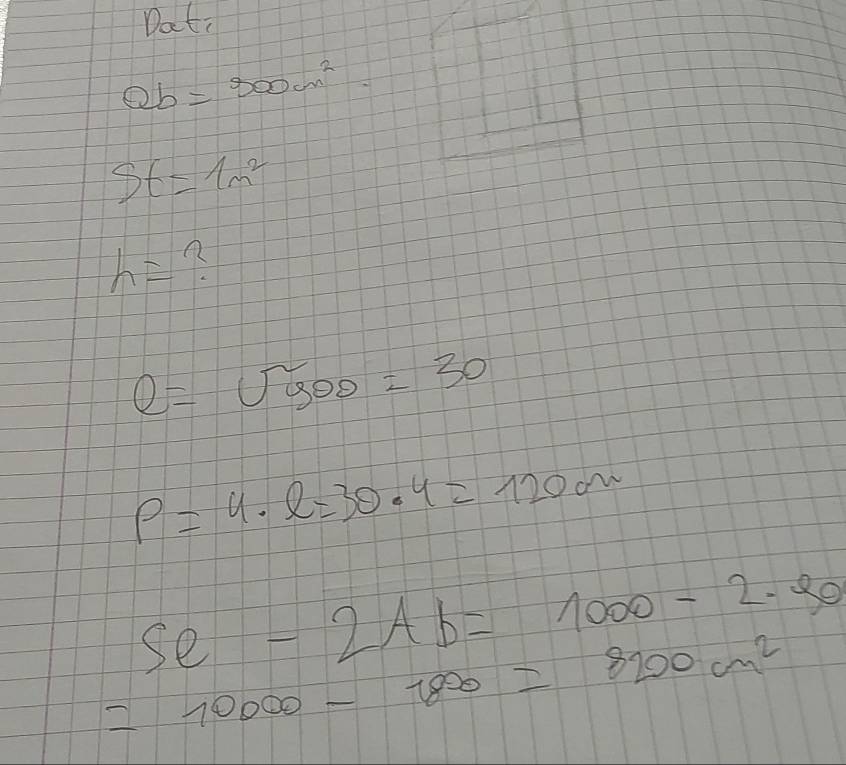 Dati
Ab = 900 cm²
St = 1m²
h = ?
l = √900 = 30
P = 4 · l = 30 · 4 = 120 cm
Sl - 2Ab = 1000 - 2 · 90
= 10000 - 1800 = 8200 cm²